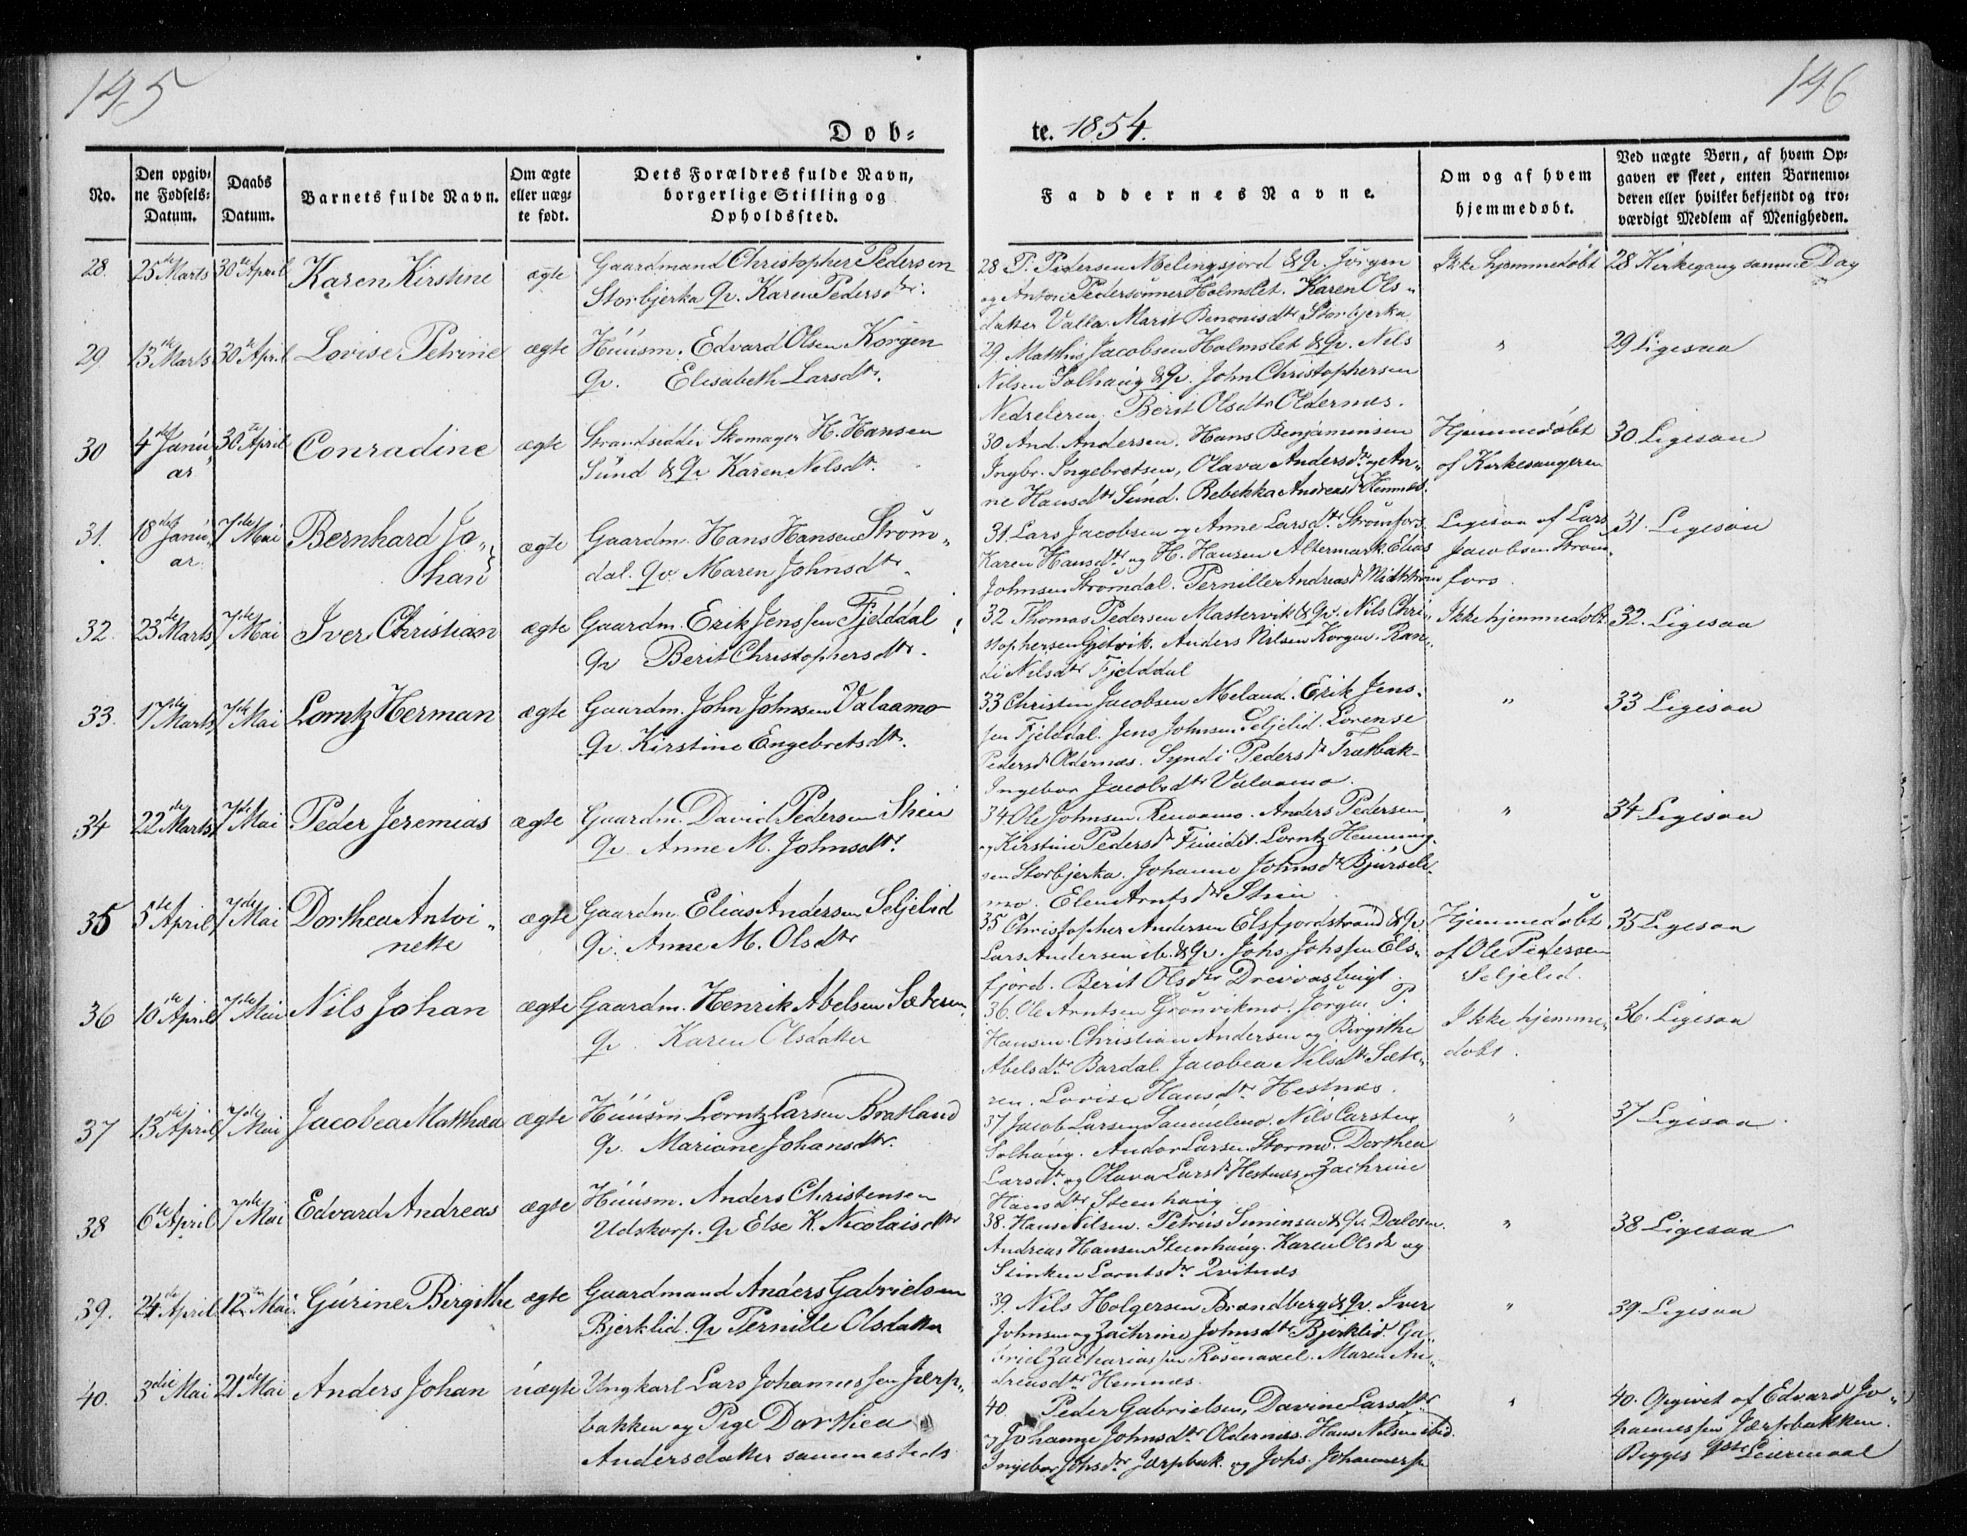 195
196
Døb-
te. 1854.
No.
Den opgiv-
ne Fødsels-
Datum.
Daabs
Datum.
Barnets fulde Navn.
Om ægte
eller uæg-
te født.
Dets Forældres fulde Navn,
borgerlige Stilling og
Opholdssted.
Faddernes Navne.
Om og af hvem
hjemmedøbt.
Ved uægte Børn, af hvem Op-
gaven er skeet, enten Barnemo-
deren eller hvilket bekjendt og tro-
værdigt Medlem af Menigheden.
28. 25de Marts 30te April Karen Kirstine ægte
Gaardmand Christopher Pedersen
Storbjerka Qv. Karen Pedersdtr.
28 P. Pedersen Melingsjord & Qv. Jørgen
og Anton Pedersønner Holmslet. Karen Ols-
datter Valla. Marit Benonisdtr Storbjerka
Ikke hjemmedøbt
28 Kirkegang samme Dag
29 13de Marts 30te April Lovise Petrine ægte
Huusm. Edvard Olsen Korgen
Qv. Elisabeth Larsdtr.
29. Matthis Jacobsen Holmslet & Qv. Nils
Nilsen Solhaug & Qv. John Christophersen
Nedreleren. Berit Olsdtr Oldernæs.
"
29 Ligesaa
30 4de Janu-
ar 30te April Conradine ægte
Strandsidder Skomager H. Hansen
Sund & Qv. Karen Nilsdtr.
30 And. Andersen. Hans Benjaminsen
Ingbr. Ingebretsen, Olava Andersdtr og An-
ne Hansdtr Sund. Rebekka Andreasdtr Hemnes.
Hjemmedøbt
af Kirkesangeren
30 Ligesaa
31. 18de Janu-
ar. 7de Mai Bernhard Jo-
han ægte
Gaardm. Hans Hansen Strøm-
dal. Qv. Maren Johnsdtr.
31. Lars Jacobsen og Anne Larsdtr Strømfors
Karen Hansdtr og H. Hansen Altermark. Elias
Johnsen Strømdal. Pernille Andreasdtr
Ligesaa af Lars
Jacobsen Strøm-
fors.
31. Ligesaa
32. 23de Marts 7de Mai Iver Christian ægte
Gaardm. Erik Jenssen Fjelddal
Qv Berit Christophersdtr.
32 Thomas Pedersen Mastervik & Qv. Nils Chri-
stophersen Gjetvik. Anders Nilsen Korgen. Ran-
di Nilsdtr Fjelddal
Ikke hjemmedøbt
32. Ligesaa
33. 17de Marts 7de Mai Lorntz Herman ægte
Gaardm. John Johnsen Valaamo
Qv. Kirstine Engebretsdtr.
33 Christen Jacobsen Meland. Erik Jens-
sen Fjelddal. Jens Johnsen Seljelid. Lorense
Pedersdtr Oldernæs. Syndi Pedersdtr Trætbak-
Ingebor Jacobsdtr Valaamo.
"
33 Ligesaa
34 22de Marts 7de Mai Peder Jeremias ægte
Gaardm. David Pedersen Stien
Qv. Anne M. Johnsdtr.
34 Ole Johnsen Renaamo. Anders Pedersen
og Kirstine Pedersdtr Fineidet. Lorntz Henning-
sen Storbjerka. Johanne Johnsdtr Bjursele-
mo. Elen Arntsdtr Stien
"
34 Ligesaa
35 5te April 7de Mai Dorthea Antoi-
nette ægte
Gaardm. Elias Andersen Seljelid
Qv. Anne M. Olsdtr
35 Christopher Andersen Elsfjordstrand & Qv.
Lars Andersen ib. & Qv. Johs Johssen Els-
fjord. Berit Olsdtr
Hjemmedøbt
af Ole Pedersen
Seljelid.
35 Ligesaa
36 10de April 7de Mai Nils Johan ægte
Gaardm. Henrik Abelsen Sæteren
Qv. Karen Olsdatter
36. Ole Arntsen Grønvikmo. Jørgen P.
Hansen. Christian Andersen og Birgithe
Abelsdtr Bardal. Jacobea Nilsdtr Sæte-
ren. Lovise Hansdtr Hestnæs.
Ikke hjemme-
døbt.
36. Ligesaa
37 13de April 7de Mai Jacobea Matthea ægte
Huusm. Lorntz Larsen Bratland
Qv. Mariane Johansdtr.
37 Jacob Larsen Sammelmo. Nils Carsten
Solhaug. Andor Larsen Stormo. Dorthea
Larsdtr og Olava Larsdtr Hestnæs. Zachrine
Hansdtr Steenhaug
"
37 Ligesaa.
38 6te April 7de Mai Edvard Andreas ægte
Huusm. Anders Christensen
Udskorp. Qv Else K. Nicolaisdtr
38. Hans Nilsen. Petrus Simensen & Qv. Dalosen.
Andreas Hansen Steenhaug. Karen Olsdtr og
Stinken Lorntsdtr Qvitnæs
"
38 Ligesaa
39. 24de April 12te Mai Gurine Birgithe ægte
Gaardmand Anders Gabrielsen
Bjerklid. Qv Pernille Olsdatter
39. Nils Holgersen Brandberg & Qv. Iver
Johnsen og Zachrine Johnsdtr Bjerklid. Ga-
briel Zachariassen Røsmaxel. Maren An-
dreasdtr Hemnes.
"
39. Ligesaa
40. 3die Mai 21de Mai Anders Johan uægte
Ungkarl Lars Johannessen Jærp-
bakken og Pige Dorthea
Andersdatter sammesteds
40. Peder Gabrielsen, Davine Larsdtr
og Johanne Johnsdtr Oldernæs. Hans Nilsen ibid.
Ingebor Johsdtr Jærpbak. og Johs. Johannessen
"
40. Opgivet af Edvard Jo-
hannessen Jærpbakken.
Begges 1ste Leiermaal